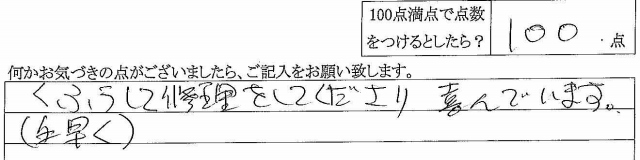 100点満点で点数
をつけるとしたら？ 100.点
何かお気づきの点がございましたら、ご記入をお願い致します。
くふうして修理をしてくださり 喜んでいます。
(手早く)